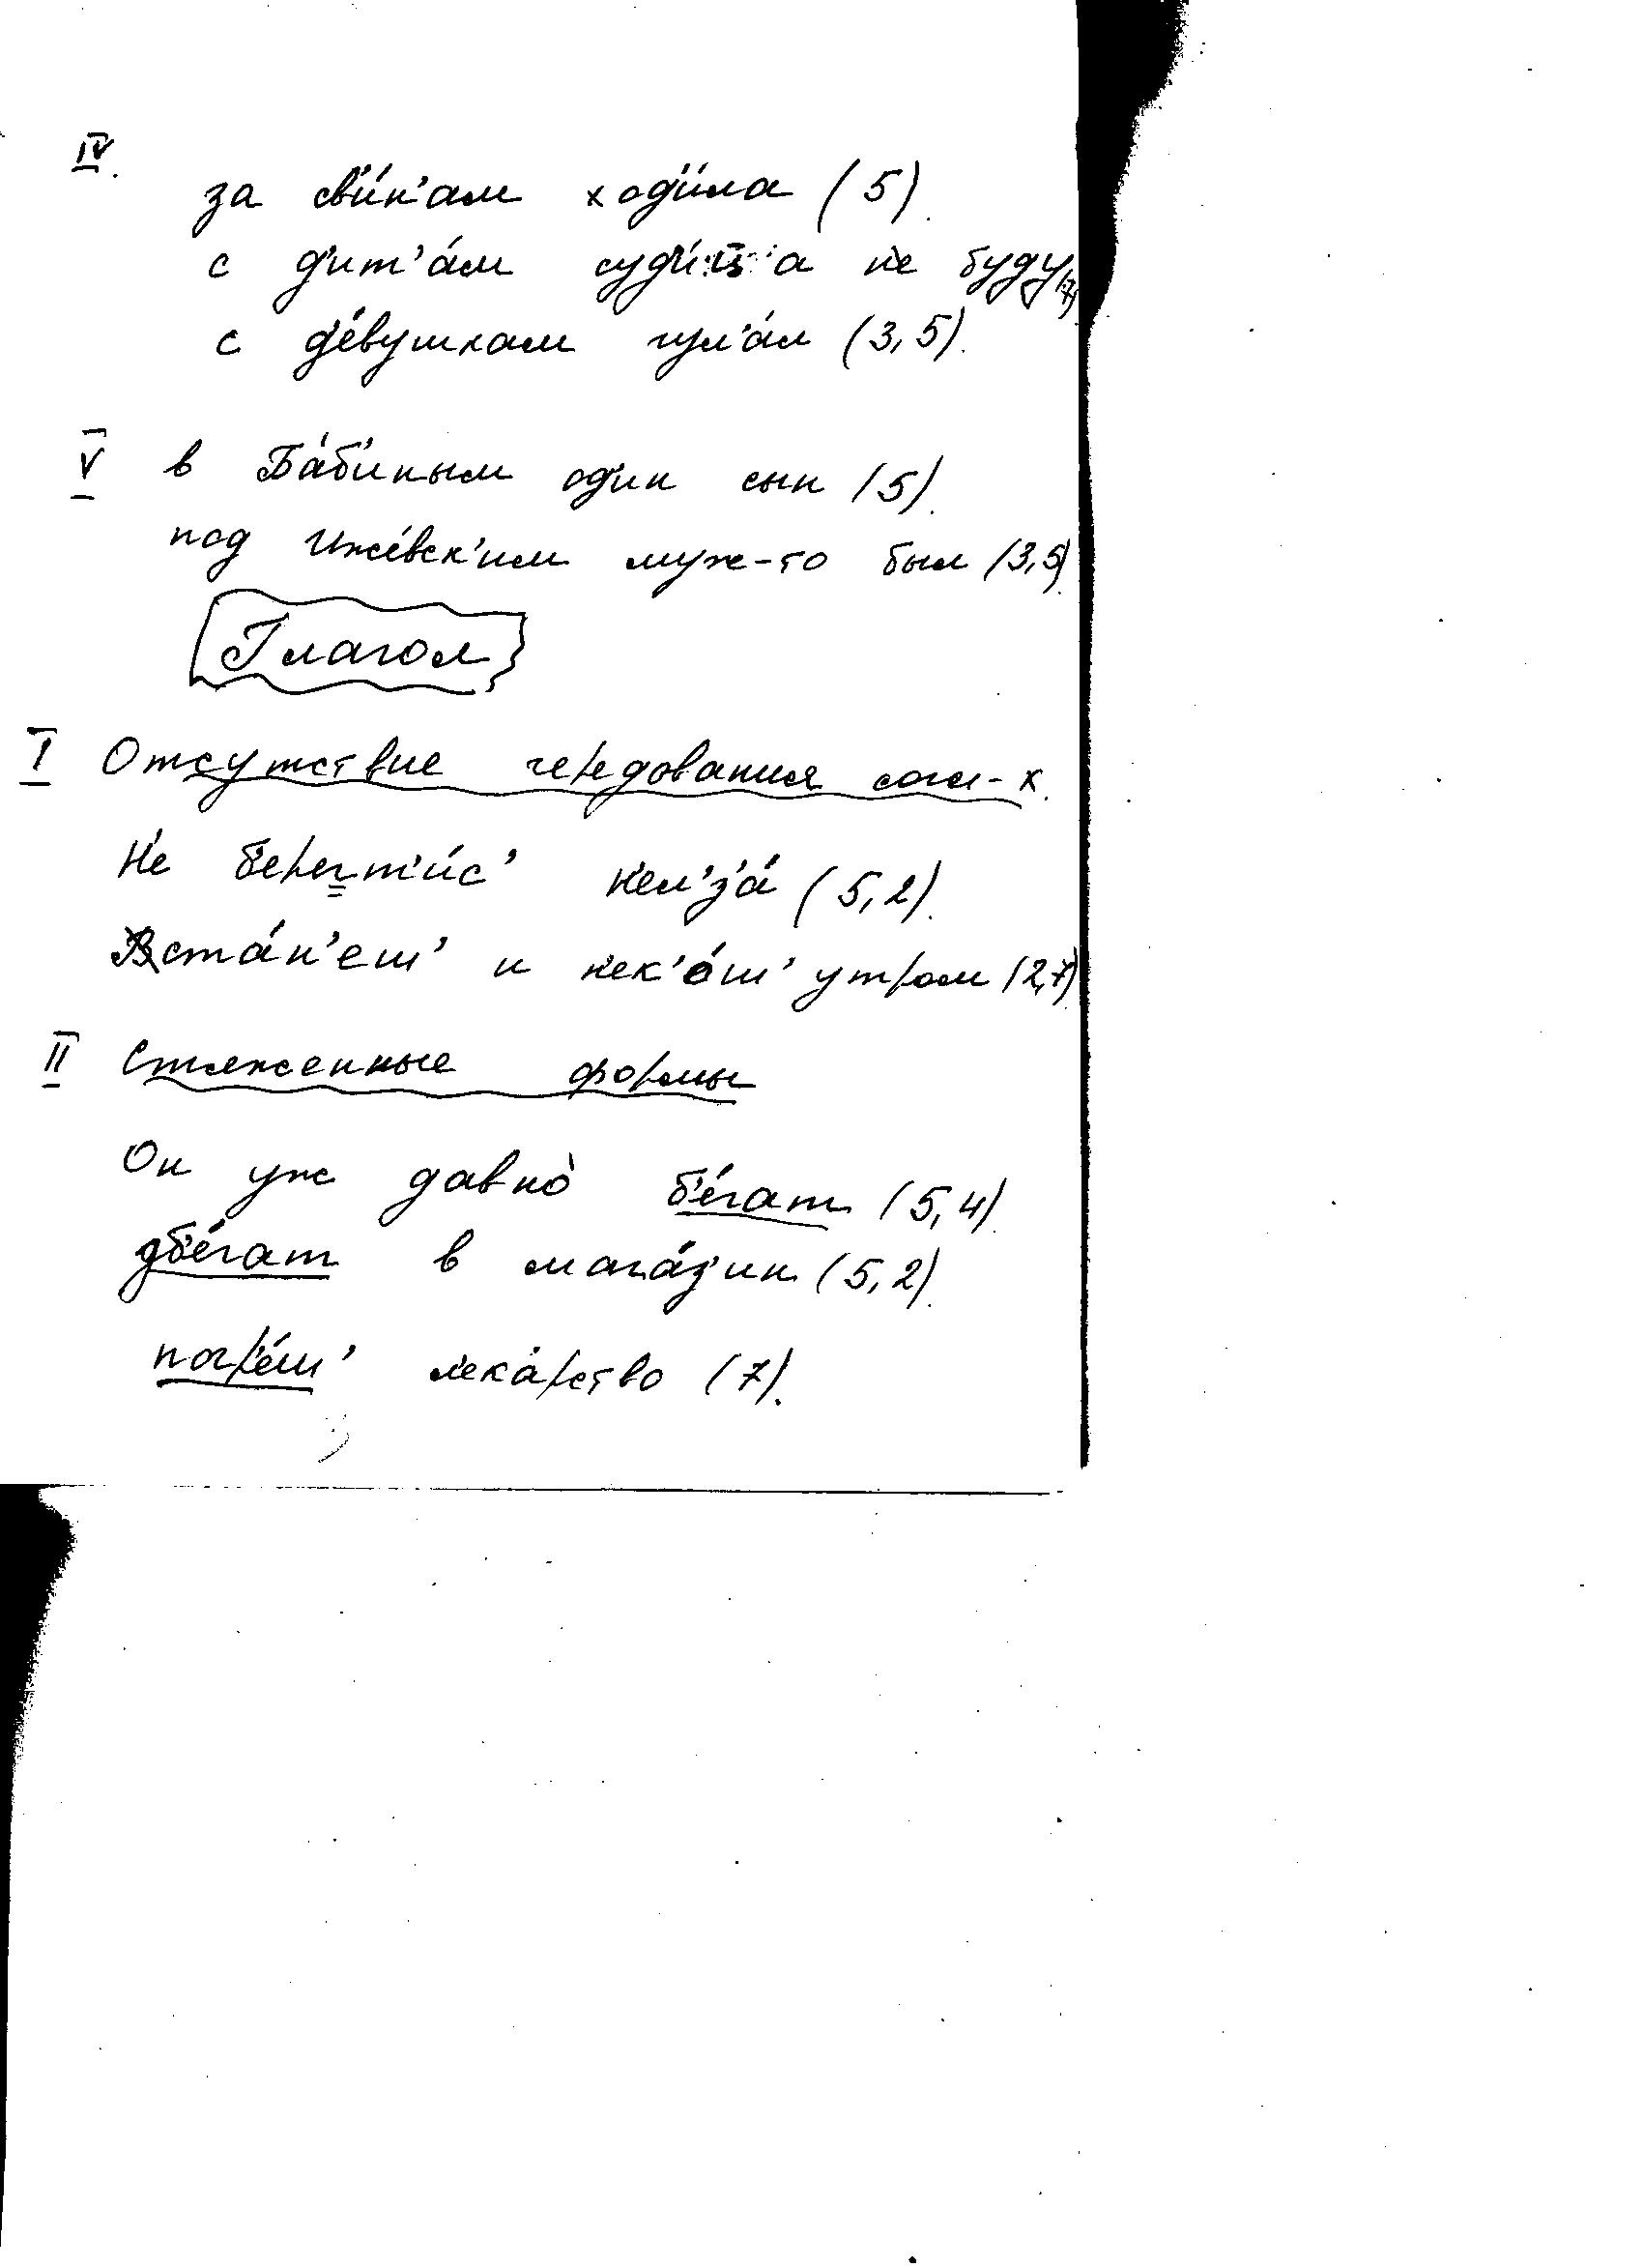 IV.
за св'и́н'ам ход'и́ла (5).
с д'ит'а́м суд'и́ц'а н'е буду (7)
с д'е́вушкам гул'а́л (3,5).
V в Ба́б'иным од'ин сын (5).
под Иже́вск'им муж-то был (3,5).
Глагол
I Отсутствие чередования согл-х.
Н'е б'ер'егт'и́с' н'ел'з'а́ (5,2).
Вста́н'еш' и п'ек'о́ш' утром (2,7)
II Стяженные формы
Он уж давно̀ б'е́гат (5,4).
дб'е́гат в мага́з'ин (5,2).
погр'е́ш' л'ека́рство (7).